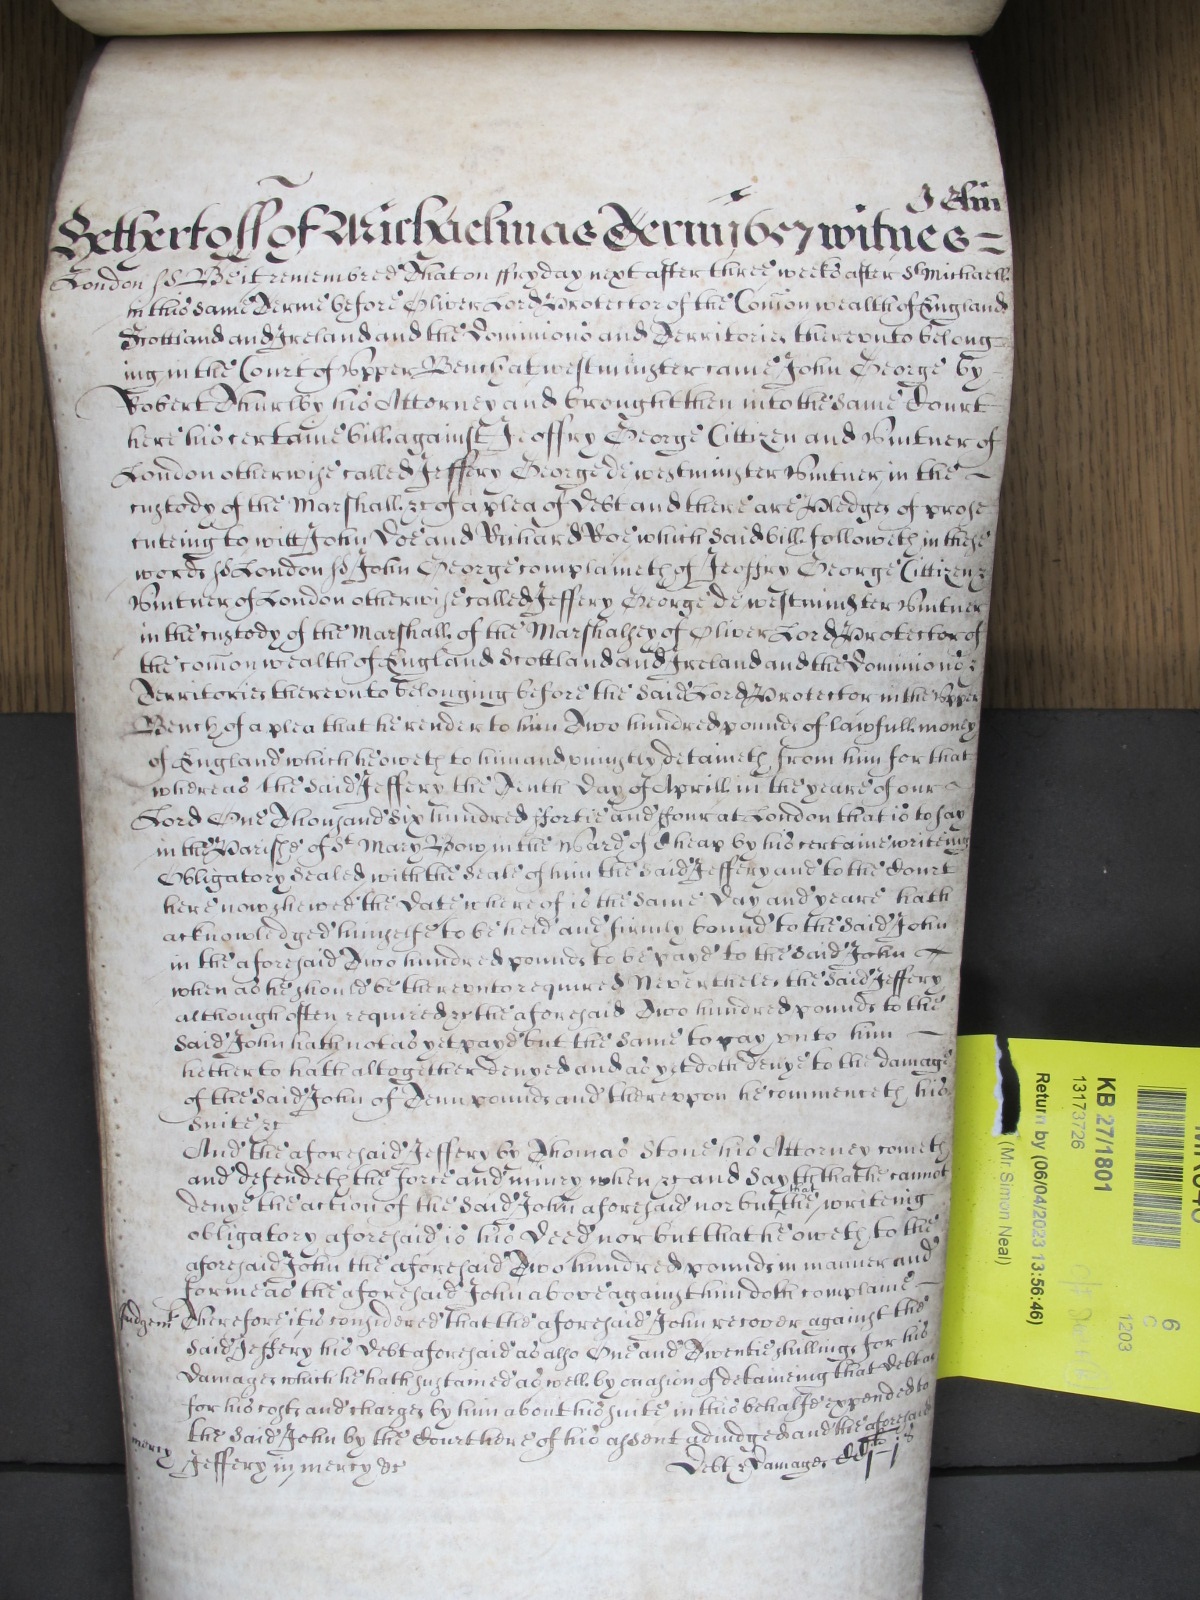 John
Hetherto ss of Michaelmas Terme 1657 witnes =
London ss Be it remembred That on ffryday next after three weeks after St Michaell
in this same Terme before Oliver Lord Protector of the Comon wealth of England
Scottland and Ireland and the Dominions and Territories thereunto belong
ing in the Court of Upper Bench at Westminster came John George by
Robert Thurlby his Attorney and brought then into the same Court
here his certaine bill against Jeoffry George Cittizen and Vintner of
London otherwise called Jeffery George de Westminster Vintner in the
custody of the Marshall &c of a plea of Debt and there are Pledges of prose
cuteing to witt John Doe and Richard Roe which said bill followeth in these
words ss London ss John George complaineth of Jeoffry George Cittizen &
Vintner of London otherwise called Jeffery George de Westminster Vintner
in the custody of the Marshall of the Marshalsey of Oliver Lord Protector of
the comon wealth of England Scottland and Ireland and the Dominions &
Territories thereunto belonging before the said Lord Protector in the Upper
Bench of a plea that he render to him Two hundred pounds of lawfull money
of England which he oweth to him and uniustly detaineth from him for that
whereas the said Jeffery the Tenth Day of Aprill in the yeare of our
Lord One Thousand six hundred ffortie and ffour at London that is to say
in the Parishe of St Mary Bow in the Ward of Cheap by his certaine writeing
Obligatory sealed with the seale of him the said Jeffery and to the Court
here now shewed the Date whereof is the same Day and yeare hath
acknowledged himselfe to be held and firmly bound to the said John
in the aforesaid Two hundred pounds to be payd to the said John
when as he should be thereunto required Nevertheles the said Jeffery
although often required &c the aforesaid Two hundred pounds to the
said John hath not as yet payd but the same to pay unto him
hetherto hath altogether denyed and as yet doth denye to the damage
of the said John of Tenn pounds and thereupon he commenceth his
suite &c
And the aforesaid Jeffery by Thomas Stone his Attorney cometh
and defendeth the force and iniury when &c and sayth that he cannot
denye the action of the said John aforesaid nor but that the writeing
obligatory aforesaid is his Deed nor but that he oweth to the
aforesaid John the aforesaid Two hundred pounds in manner and
forme as the aforesaid John above against him doth complaine
Judgemt Therefore it is considered That the aforesaid John recover against the
said Jeffery his Debt aforesaid as also One and Twentie shillings for his
Damages which he hath sustained as well by occasion of detaineing that Debt as
for his costs and charges by him about his suite in this behalfe expended to
the said John by the Court here of his assent adiudged and the aforesaid
mercy Jeffery in mercy &c Debt & Damages
KB 27/1801
13173726
Return by (06/04/2023 13:56:46)
(Mr Simon Neal)
6
C
1203